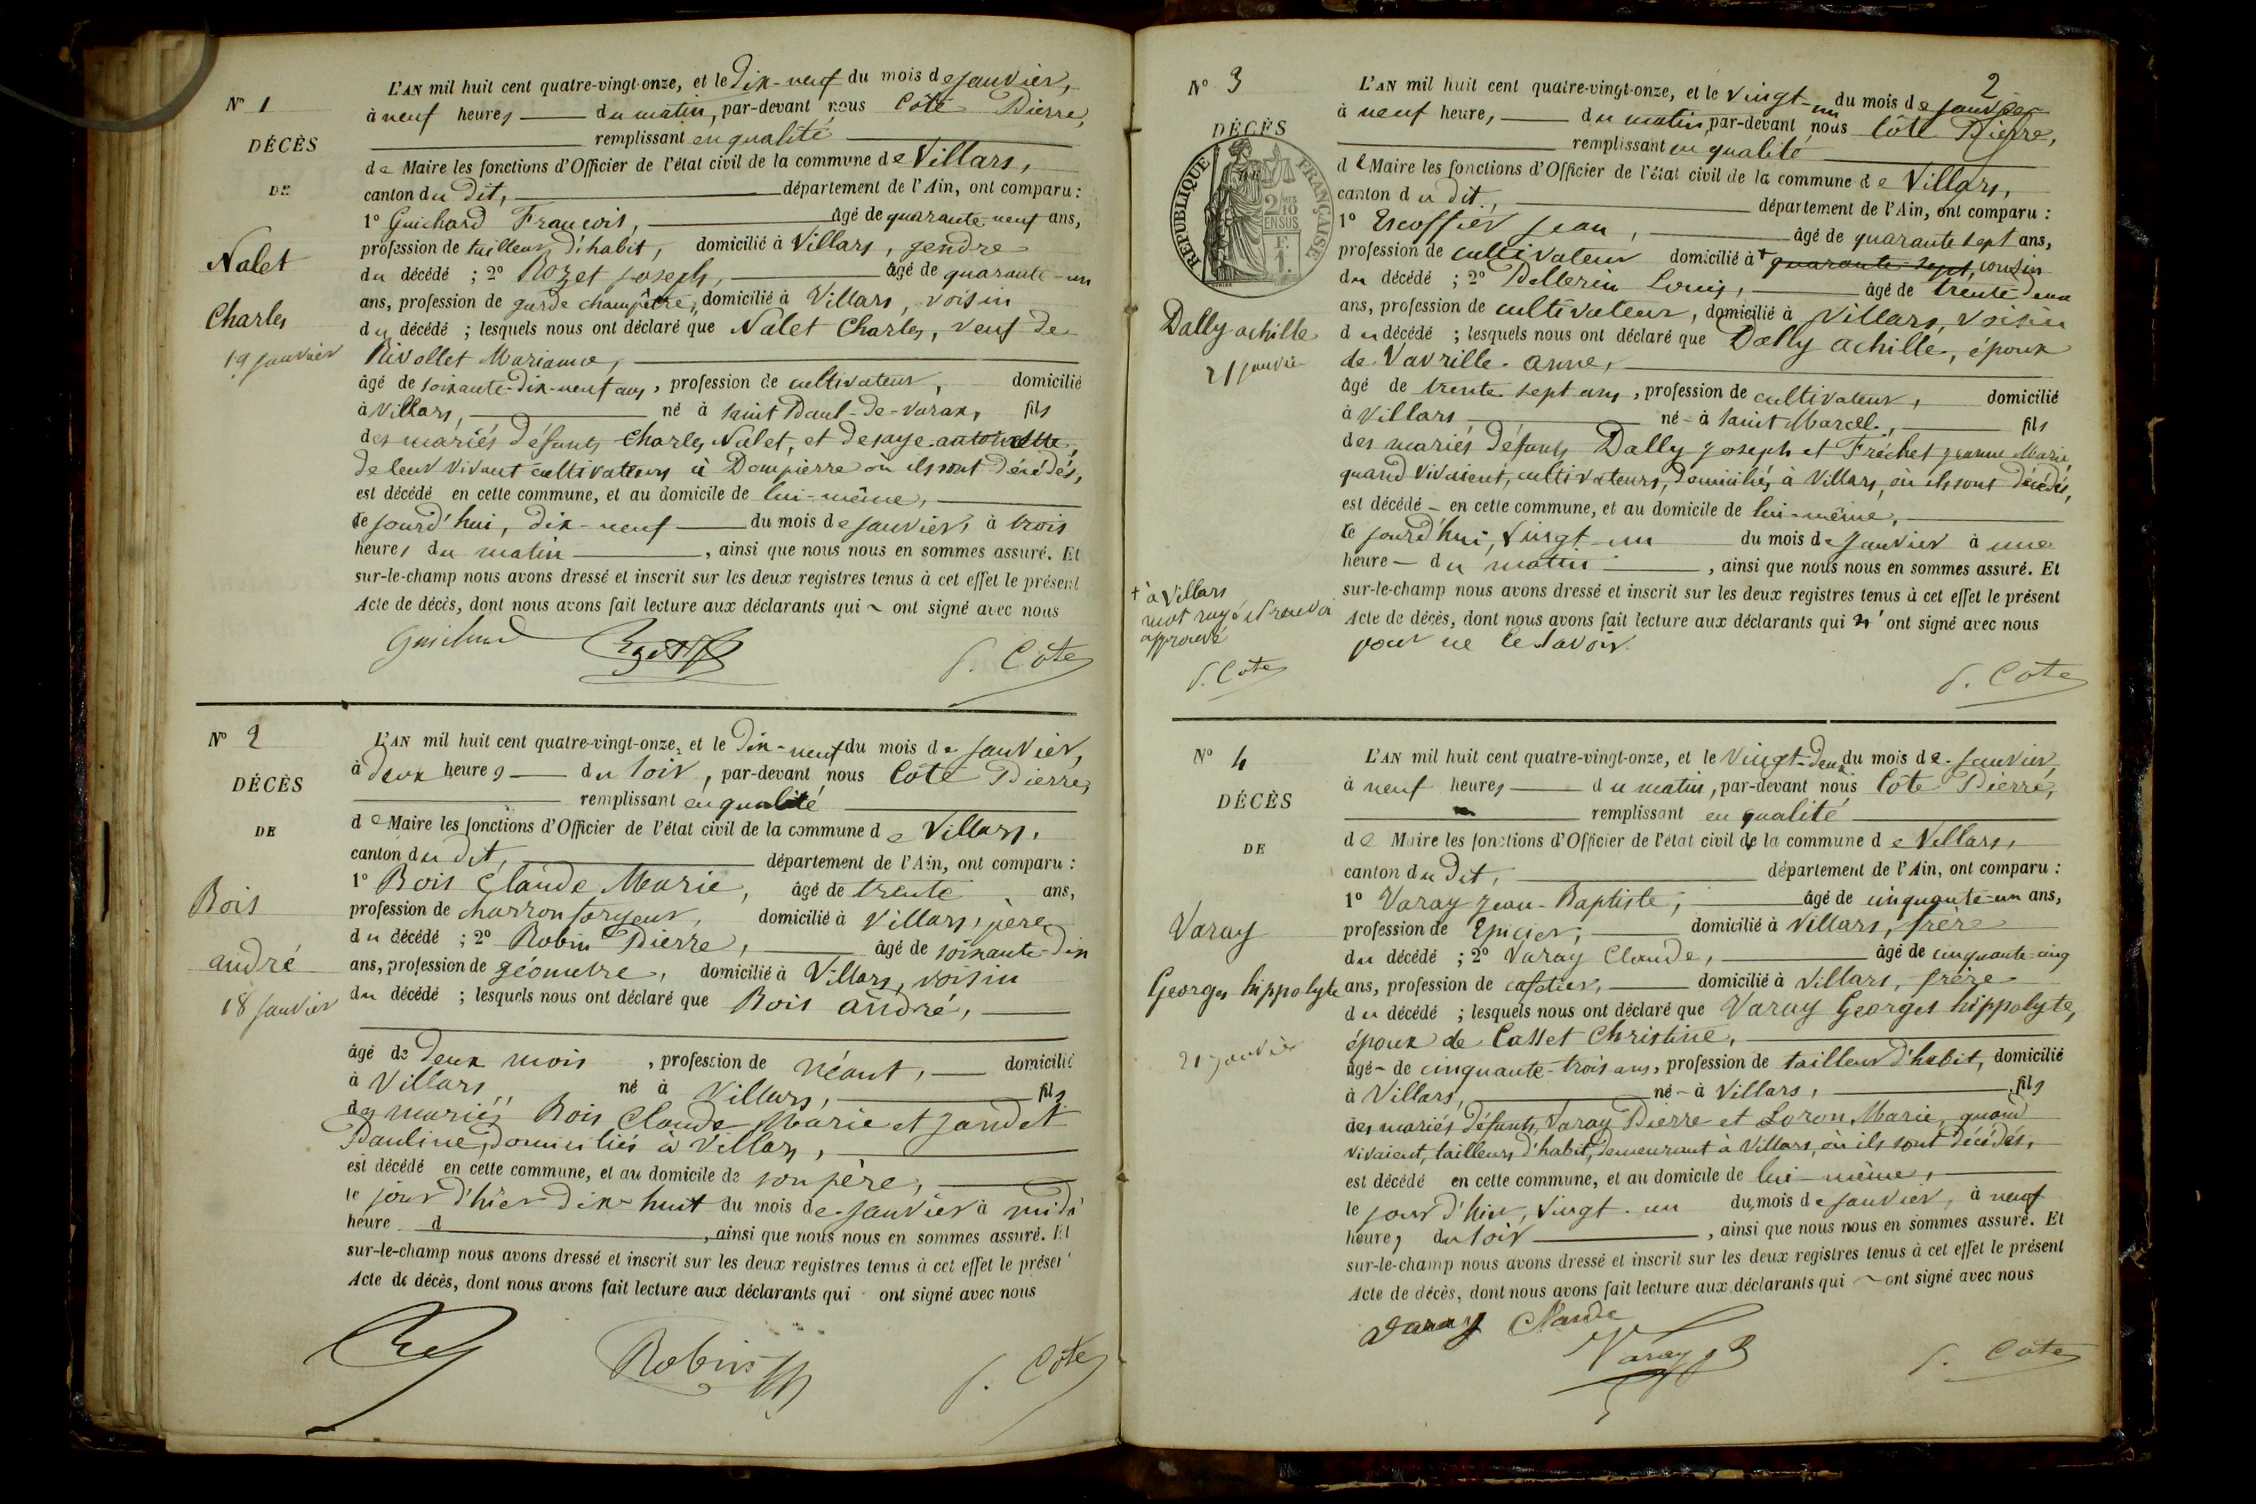 N° 1
DÉCÈS
DE
Nalet
Charles
19 janvier
L'AN mil huit cent quatre-vingt-onze, et le dix-neuf du mois de janvier,
à neuf heures du matin, par-devant nous Côte Pierre,
remplissant en qualité
de Maire les fonctions d'Officier de l'état civil de la commune de Villars,
canton du dit, département de l'Ain, ont comparu :
1° Guichard François, âgé de quarante-neuf ans,
profession de tailleur d'habit, domicilié à Villars, gendre
du décédé ; 2° Rozet joseph, âgé de quarante-un
ans, profession de garde champêtre, domicilié à Villars, voisin
du décédé ; lesquels nous ont déclaré que Nalet Charles, veuf de
Rivollet Marianne,
âgé de soixante-dix-neuf ans, profession de cultivateur, domicilié
à Villars, né à saint Paul-de-varax, fils
des mariés défunts Charles Nalet, et desaye antoinette,
de leur vivant cultivateurs à Dompierre où ils sont décédés,
est décédé en cette commune, et au domicile de lui-même,
ce jourd'hui, dix-neuf du mois de janvier, à trois
heures du matin, ainsi que nous nous en sommes assuré. Et
sur-le-champ nous avons dressé et inscrit sur les deux registres tenus à cet effet le présent
Acte de décès, dont nous avons fait lecture aux déclarants qui ~ ont signé avec nous
Guichard P. Côte
N° 2
DÉCÈS
DE
Bois
andré
18 janvier
L'AN mil huit cent quatre-vingt-onze, et le dix-neuf du mois de janvier,
à deux heures du soir, par-devant nous Côte Pierre,
remplissant en qualité
de Maire les fonctions d'Officier de l'état civil de la commune de Villars,
canton du dit, département de l'Ain, ont comparu :
1° Bois Claude Marie, âgé de trente ans,
profession de charron forgeur, domicilié à Villars, père
du décédé ; 2° Robin Pierre, âgé de soixante-dix
ans, profession de géometre, domicilié à Villars, voisin
du décédé ; lesquels nous ont déclaré que Bois andré,
âgé de deux mois, profession de néant, domicilié
à Villars né à Villars, fils
des mariés Bois Claude Marie et Jandet
Pauline, domiciliés à Villars,
est décédé en cette commune, et au domicile de son père,
le jour d'hier dix-huit du mois de janvier à midi
heure d, ainsi que nous nous en sommes assuré. Et
sur-le-champ nous avons dressé et inscrit sur les deux registres tenus à cet effet le présent
Acte de décès, dont nous avons fait lecture aux déclarants qui ont signé avec nous
Robin P. Côte
2
N° 3
DÉCÈS
RÉPUBLIQUE FRANÇAISE
2/10 EN SUS
Dally achille
21 janvier
L'AN mil huit cent quatre-vingt-onze, et le vingt-un du mois de janvier
à neuf heures, du matin, par-devant nous Côte Pierre,
remplissant en qualité
de Maire les fonctions d'Officier de l'état civil de la commune de Villars,
canton du dit, département de l'Ain, ont comparu :
1° Escoffier jean, âgé de quarante sept ans,
profession de cultivateur domicilié à + quarante-sept, cousin
du décédé ; 2° Pellerin Louis, âgé de trente deux
ans, profession de cultivateur, domicilié à Villars, voisin
du décédé ; lesquels nous ont déclaré que Dally achille, époux
de Vavrille anne,
âgé de trente sept ans, profession de cultivateur, domicilié
à Villars né à saint Marcel, fils
des mariés défunts Dally joseph et Fréchet jeanne Marie
quand vivaient, cultivateurs, domiciliés à Villars, où ils sont décédés,
est décédé en cette commune, et au domicile de lui-même,
ce jourd'hui, vingt-un du mois de janvier à une
heure du matin, ainsi que nous nous en sommes assuré. Et
sur-le-champ nous avons dressé et inscrit sur les deux registres tenus à cet effet le présent
Acte de décès, dont nous avons fait lecture aux déclarants qui n'ont signé avec nous
pour ne le savoir.
+ à Villars
mot rayé et renvoi
approuvé
P. Côte
P. Côte
N° 4
DÉCÈS
DE
Varay
Georges hippolyte
21 janvier
L'AN mil huit cent quatre-vingt-onze, et le vingt-deux du mois de janvier,
à neuf heures du matin, par-devant nous Côte Pierre,
remplissant en qualité
de Maire les fonctions d'Officier de l'état civil de la commune de Villars,
canton du dit, département de l'Ain, ont comparu :
1° Varay jean-Baptiste, âgé de cinquante-un ans,
profession de Epicier, domicilié à Villars, frère
du décédé ; 2° Varay Claude, âgé de cinquante-cinq
ans, profession de cafetier, domicilié à Villars, frère
du décédé ; lesquels nous ont déclaré que Varay Georges hippolyte,
époux de Casset Christine,
âgé de cinquante-trois ans, profession de tailleur d'habit, domicilié
à Villars, né à Villars, fils
des mariés défunts, Varay Pierre et Loron Marie, quand
vivaient, tailleurs d'habit, demeurant à Villars, où ils sont décédés,
est décédé en cette commune, et au domicile de lui-même,
le jour d'hier, vingt-un du mois de janvier, à neuf
heures du soir, ainsi que nous nous en sommes assuré. Et
sur-le-champ nous avons dressé et inscrit sur les deux registres tenus à cet effet le présent
Acte de décès, dont nous avons fait lecture aux déclarants qui ~ ont signé avec nous
Varay Claude
Varay P. Côte